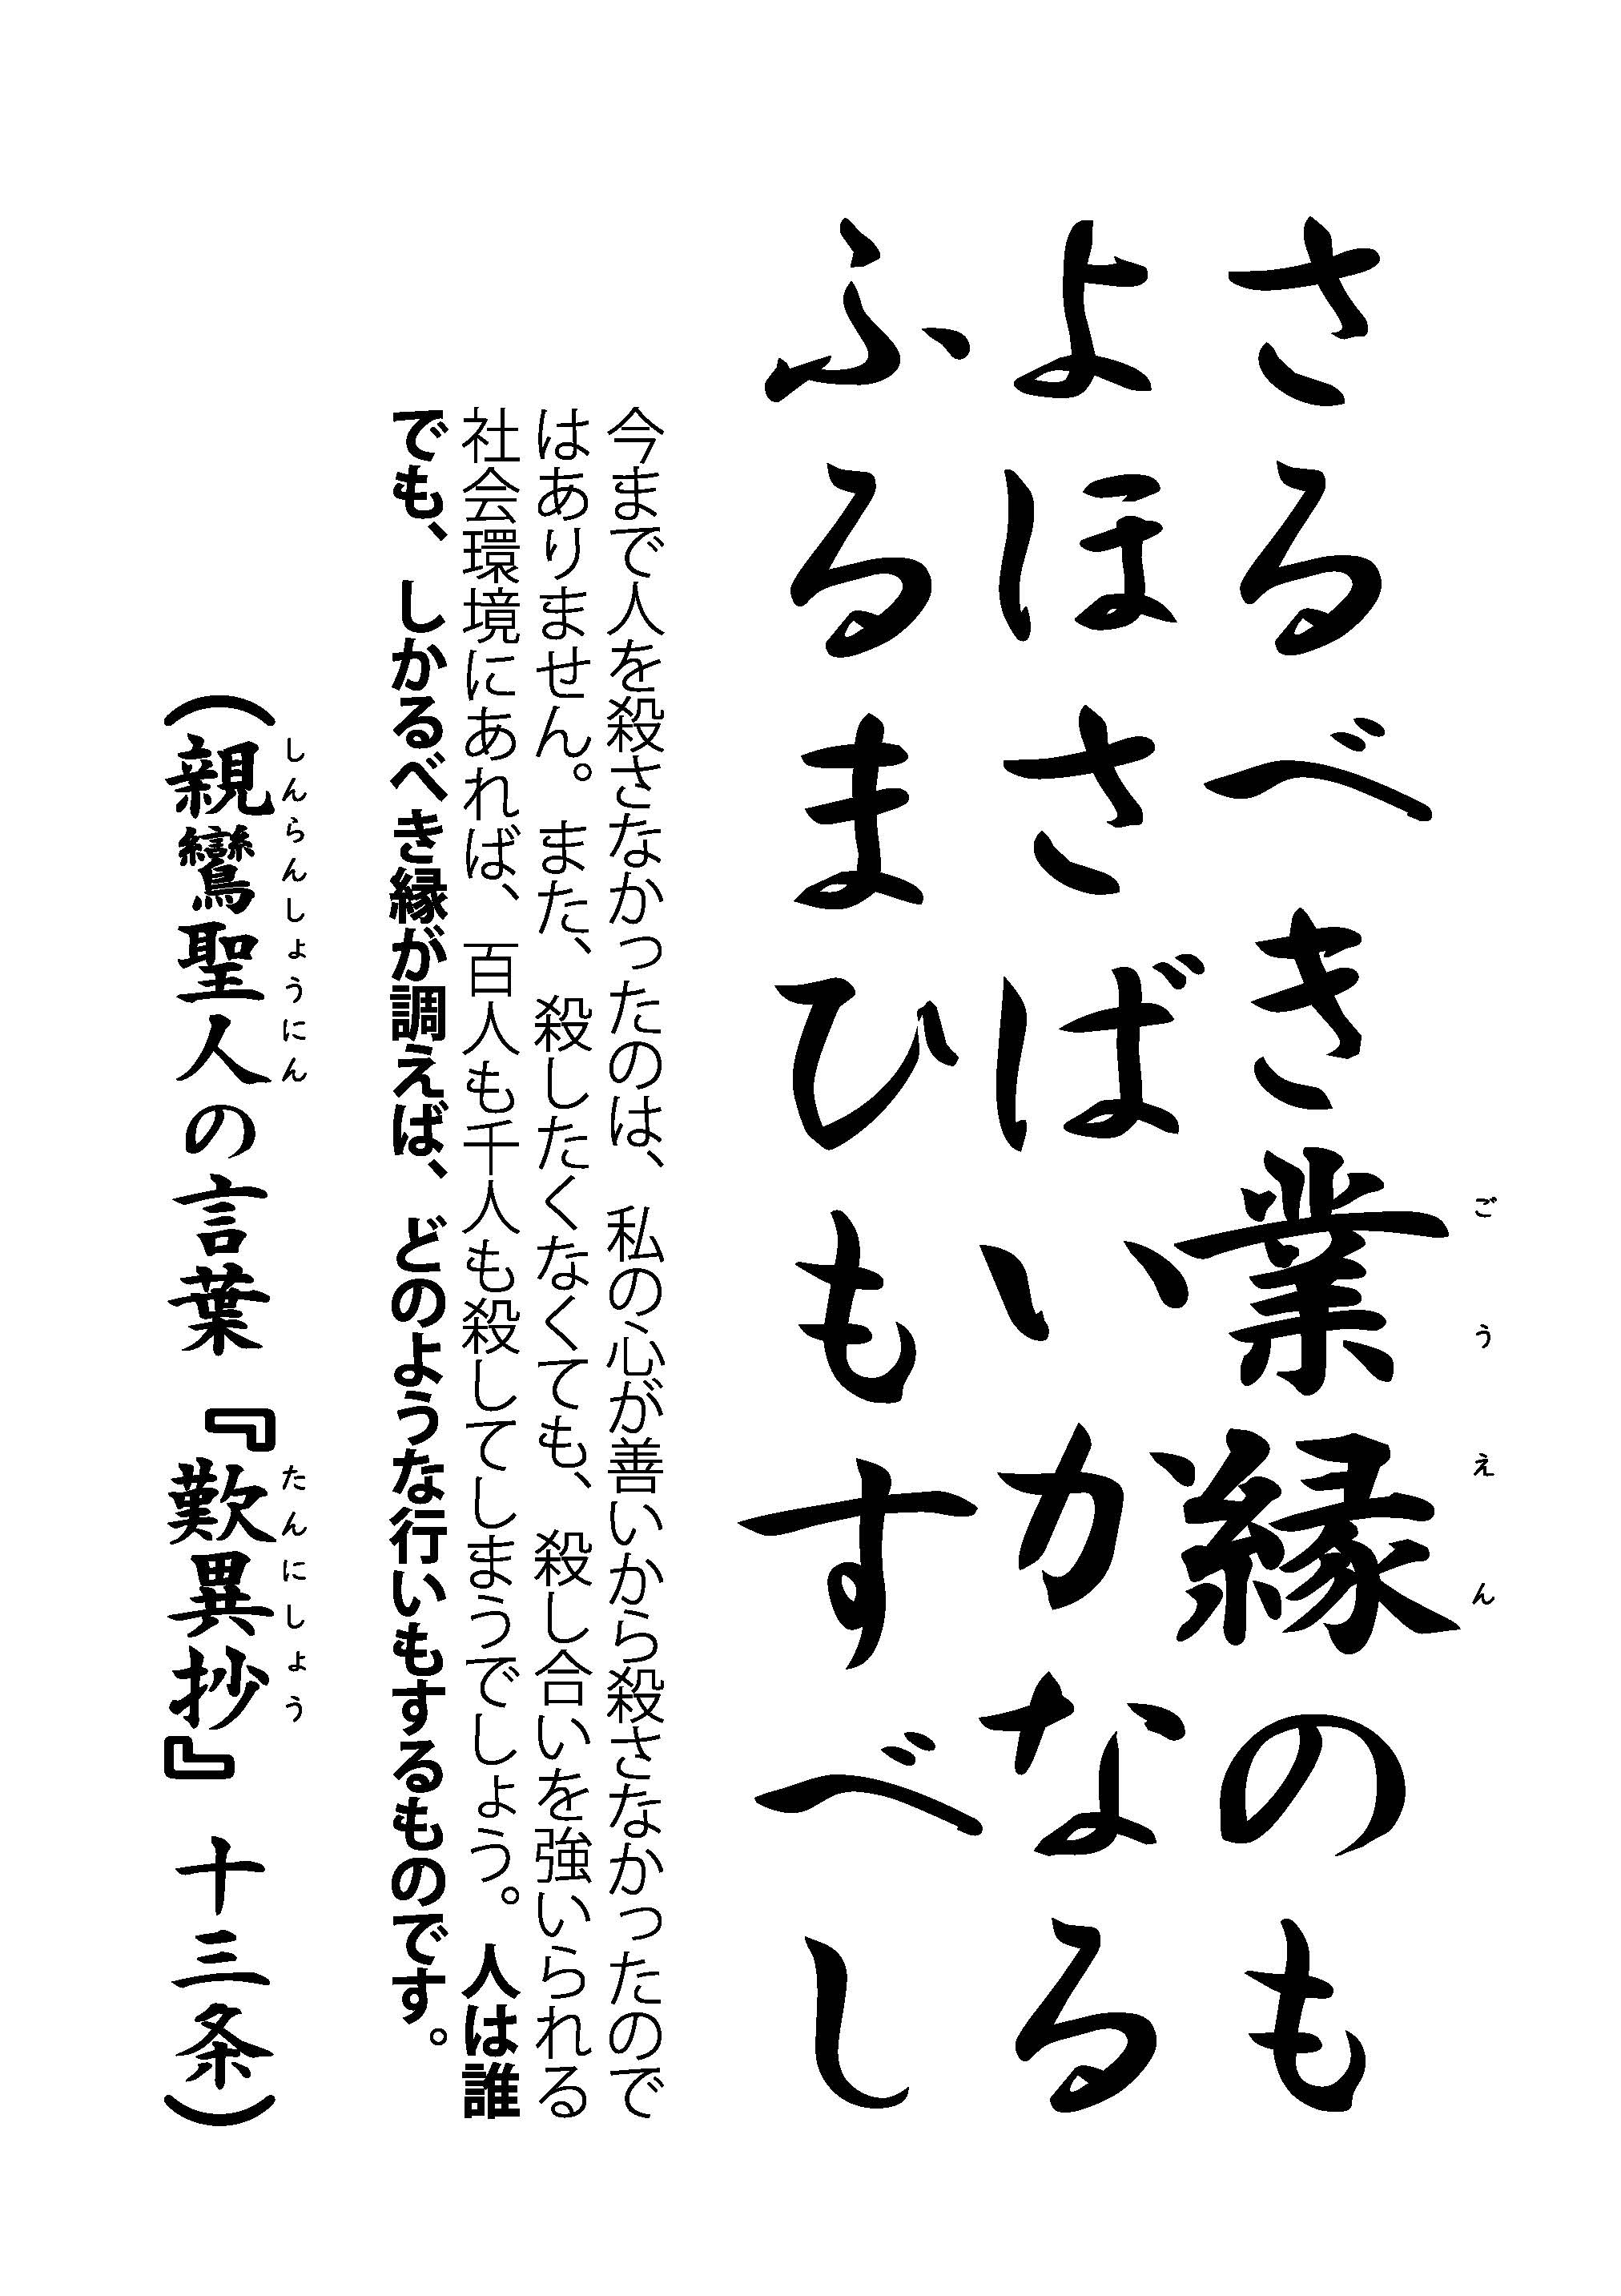 さるべき業縁のも
よほさばいかなる
ふるまひもすべし
今まで人を殺さなかったのは、私の心が善いから殺さなかったので
はありません。また、殺したくなくても、殺し合いを強いられる
社会環境にあれば、百人も千人も殺してしまうでしょう。人は誰
でも、しかるべき縁が調えば、どのような行いもするものです。
（親鸞聖人の言葉『歎異抄』十三条）
ごうえん
しんらんしょうにん
たんにしょう